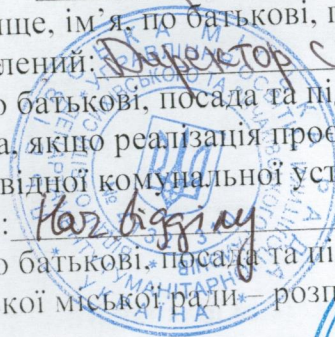 ище, ім’я, по батькові, п
лений: Директор С
о батькові, посада та пі
а, якщо реалізація проє
відної комунальної уст
: Нач відділу
о батькові, посада та пі
ької міської ради – розп
УКРАЇНА